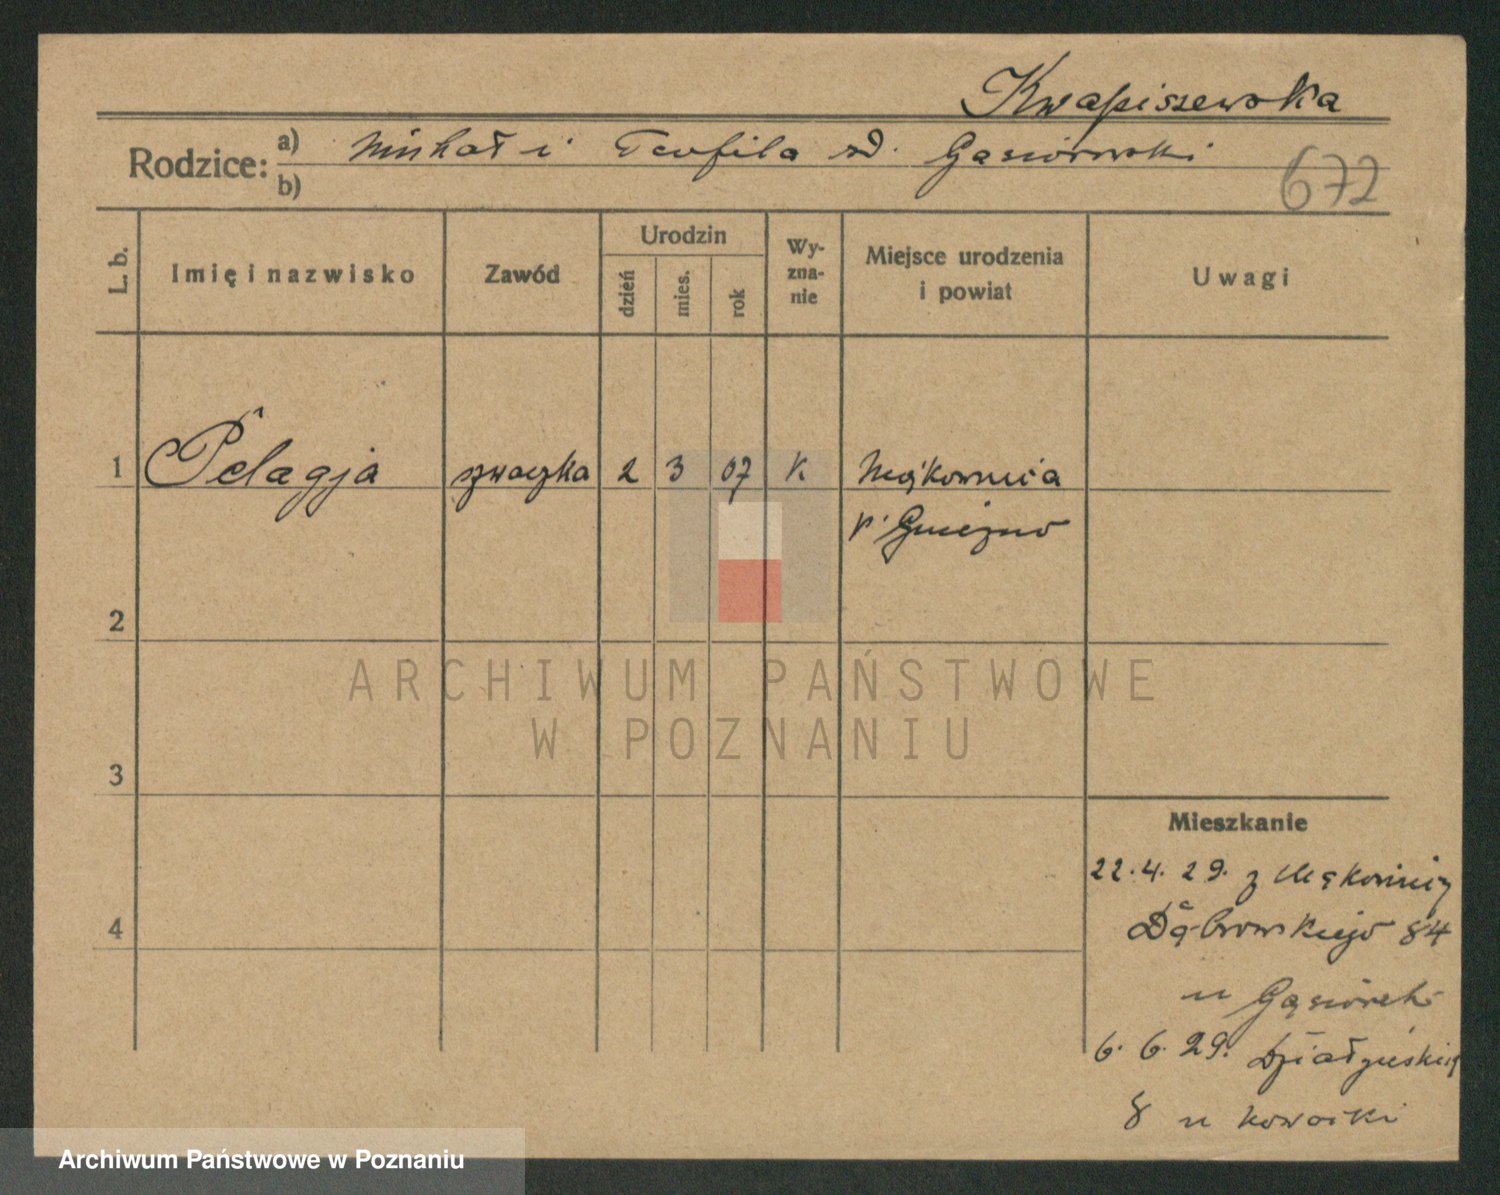 Kwapiszewska
Rodzice: a) Michał i Teofila zd. Gąsiorowski
b)
672
L. b. Imię i nazwisko Zawód Urodzin dzień mies. rok Wy-zna-nie Miejsce urodzenia i powiat Uwagi
1 Pelagja szwaczka 2 3 07 k. Mąkownica
p. Gniezno
2
ARCHIWUM PAŃSTWOWE
W POZNANIU
3
Mieszkanie
22.4.29. z Mąkownicy
4 Dąbrowskiego 84
u Gąsiorek
6.6.29. Działyńskich
8 u
Archiwum Państwowe w Poznaniu